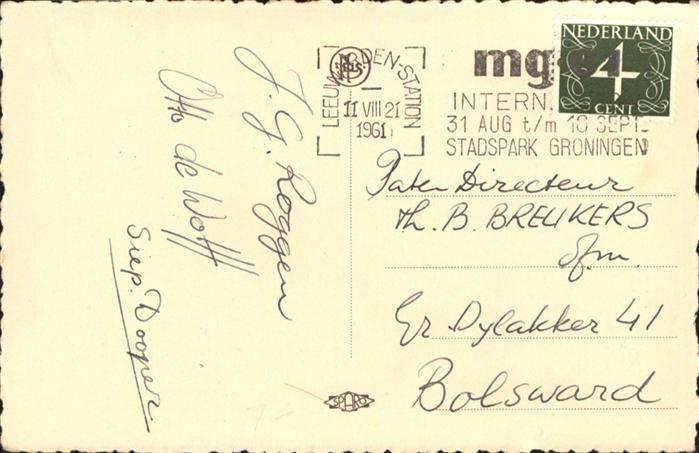 J. G. Roggen
Otto de Wolff
Siep. Dooper
LEEUWARDEN-STATION
11 VIII 21
1961
mg 61
INTERN.
31 AUG t/m 10 SEPT.
STADSPARK GRONINGEN
NEDERLAND
4
CENT
Pater Directeur
Th. B. BREUKERS
ofm.
Gr Dylakker 41
Bolsward